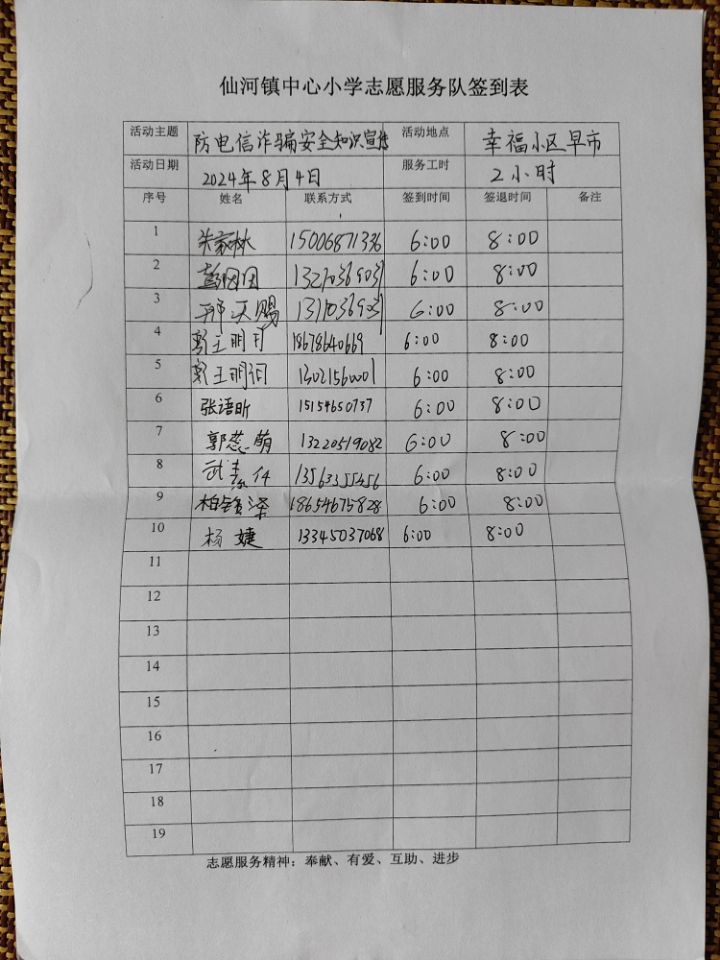 仙河镇中心小学志愿服务队签到表
活动主题 防电信诈骗安全知识宣传 活动地点 幸福小区早市
活动日期 2024年8月4日 服务工时 2小时
序号 姓名 联系方式 签到时间 签退时间 备注
1 朱家林 15006871336 6:00 8:00
2 6:00 8:00
3 邢天赐 6:00 8:00
4 郭王明月 18678640669 6:00 8:00
5 郭王明润 13021560001 6:00 8:00
6 张语昕 15154650737 6:00 8:00
7 郭蕊萌 13220519082 6:00 8:00
8 13563355456 6:00 8:00
9 18654675828 6:00 8:00
10 杨婕 13345037068 6:00 8:00
11
12
13
14
15
16
17
18
19
志愿服务精神：奉献、有爱、互助、进步